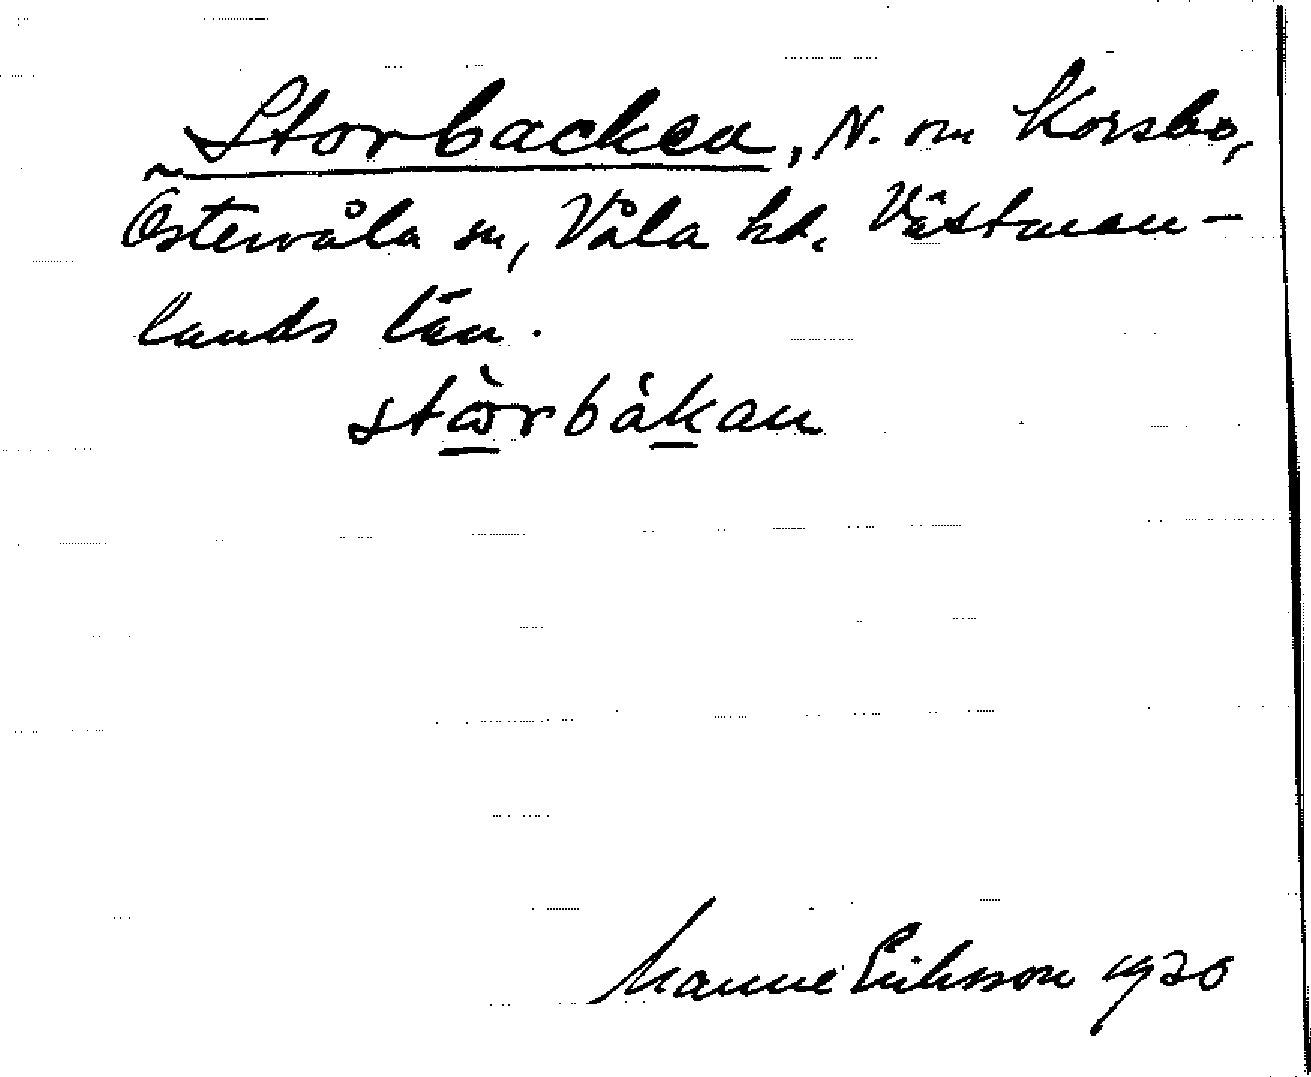 Storbacken, N. om Korsbo,
Östervåla sn, Våla hd. Västman-
lands län.
stὼrbákan
Manne Eriksson 1930